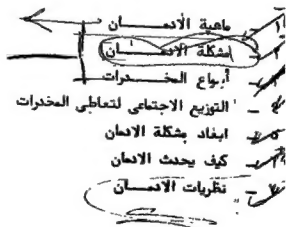 ١ - ماهية الأدمــــان
٢ - مشكلة الادمـــان
٣ - أنواع المخــدرات
٤ - التوزيع الاجتماعى لتعاطى المخدرات
٥ - ابعاد مشكلة الادمان
٦ - كيف يحدث الادمان
٧ - نظريات الادمــــان